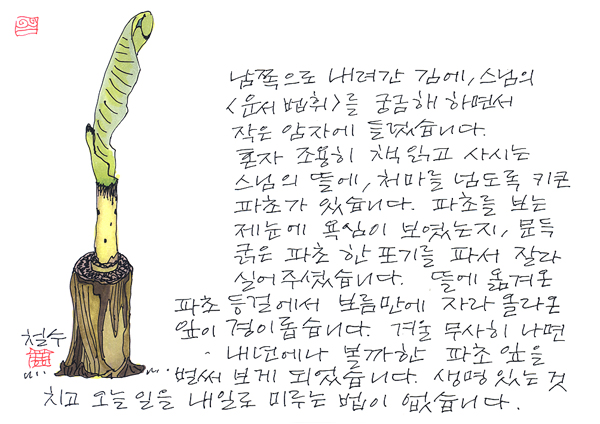 남쪽으로 내려간 김에, 스님의
<운서법휘>를 궁금해 하면서
작은 암자에 들렀습니다.
혼자 조용히 책읽고 사시는
스님의 뜰에, 처마를 넘도록 키큰
파초가 있습니다. 파초를 보는
제눈에 욕심이 보였는지, 문득
굵은 파초 한 포기를 파서 잘라
실어주셨습니다. 뜰에 옮겨온
파초 등걸에서 보름만에 자라 올라온
잎이 경이롭습니다. 겨울 무사히 나면
내년에나 볼까한 파초 잎을
벌써 보게 되었습니다. 생명 있는 것
치고 오늘 일을 내일로 미루는 법이 없습니다.
철수